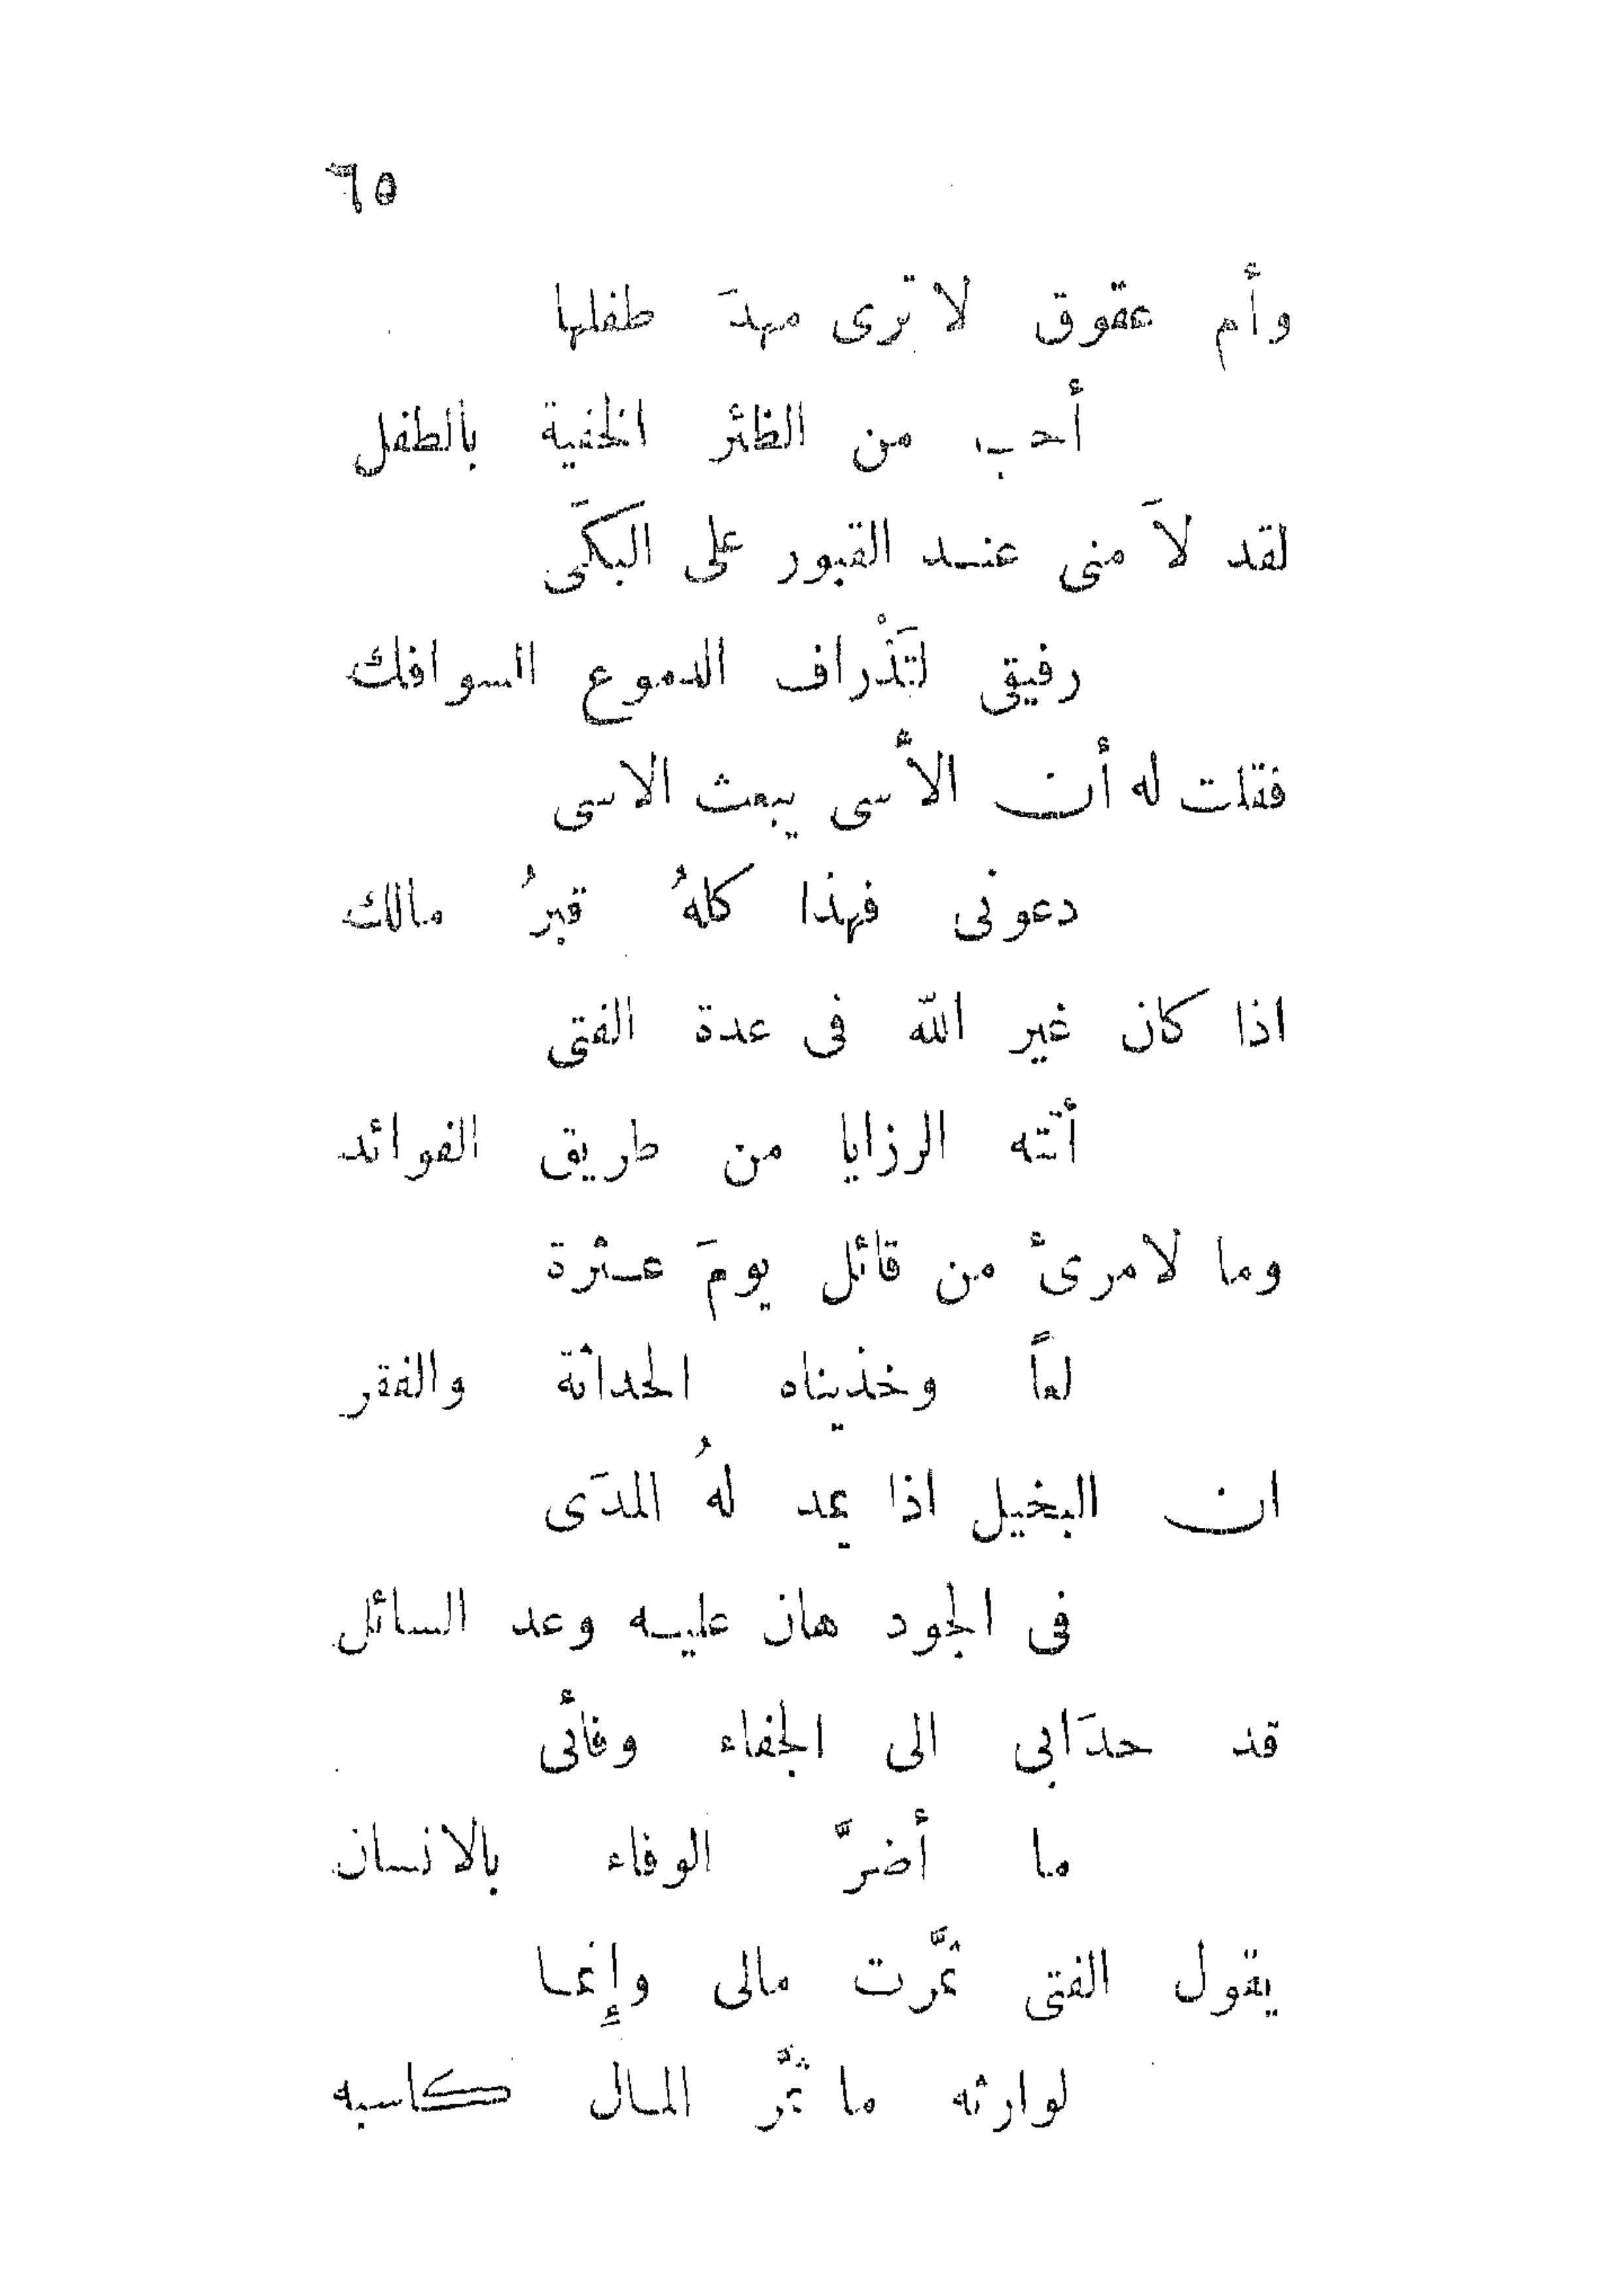 ٦٥
وأم عقوق لا ترى مهدَ طفلها
أحب من الظئر الخفية بالطفل
لقد لاَ منى عند القبور على البكَى
رفيقى لتَذْراف الدموع السوافك
فقلت له أن الأسى يبعث الاسى
دعونى فهذا كلهُ قبرُ مالك
اذا كان غير الله فى عدة الفتى
أتته الرزايا من طريق الفوائد
وما لامرئ من قائل يومَ عثرة
لعاً وخذيناه الحداثة والفقر
ان البخيل اذا يمد لهُ المدَى
فى الجود هان عليه وعد السائل
قد حدَابى الى الجفاء وفائى
ما أضرَّ الوفاء بالانسان
يقول الفتى ثمَّرت مالى وإِنما
لوارثه ما ثمَّر المال كاسبه